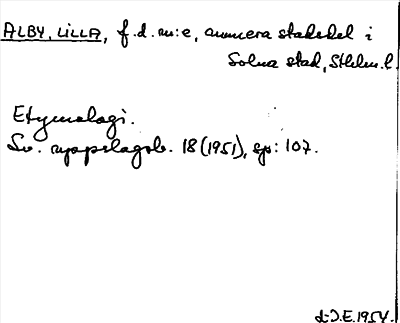 ALBY, LILLA, f.d. m:e, numera stadsdel i
Solna stad, Sthlm.l.
Etymologi.
Sv. uppslagsb. 18 (1951), sp: 107.
d:o J.E. 1954.